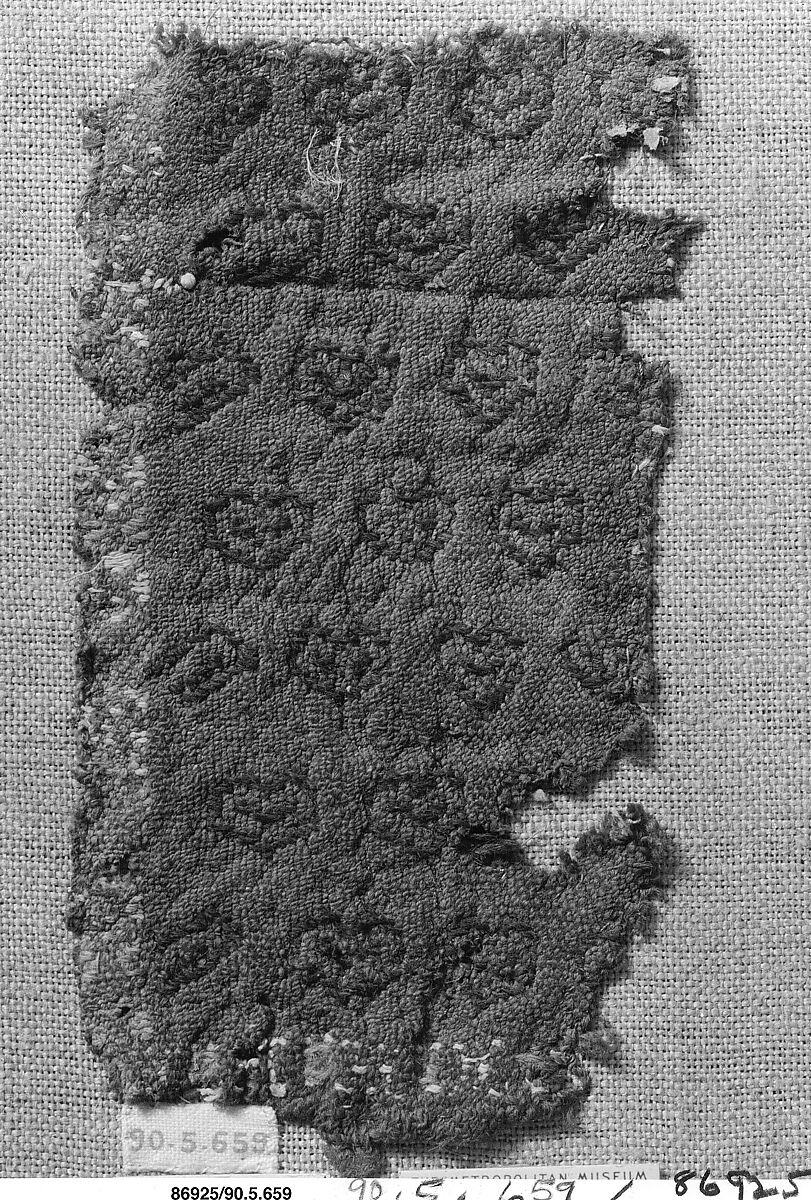 90.5.659
METROPOLITAN MUSEUM
86925/90.5.659
90.5.659